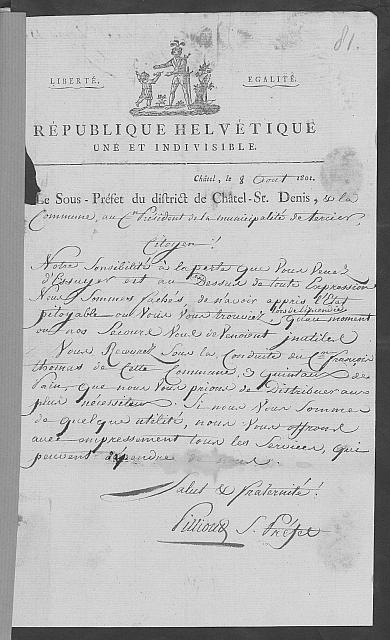 81.
LIBERTÉ. EGALITÉ.
RÉPUBLIQUE HELVÉTIQUE
UNE ET INDIVISIBLE.
Châtel, le 8 Aout 1801.
Le Sous-Préfet du district de Châtel-St. Denis, & la
Commune, au Cn. Président de la municipalité de
Citoyen!
Notre Sensibilité à la perte que Vous Venez
d'Essuyer est au Dessus de toute Expression
Nous Sommes fachés, de n'avoir appris l'Etat
pitoyable ou Vous Vous trouviez lors de l'incendie, qu'au moment
ou nos Secours Vous Devenoient inutiles
Vous Recevrez Sous la Conduite du Cn. françois
thomas de Cette Commune, 3 quintaux de
Pain, que nous Vous prions de Distribuer aux
plus nécessiteux. Si nous Vous Somme
de quelque utilité, nous Vous offrons
avec empressement tous les Services, qui
peuvent dépendre de nous.
Salut & fraternité!
Pilloud S. Préfet